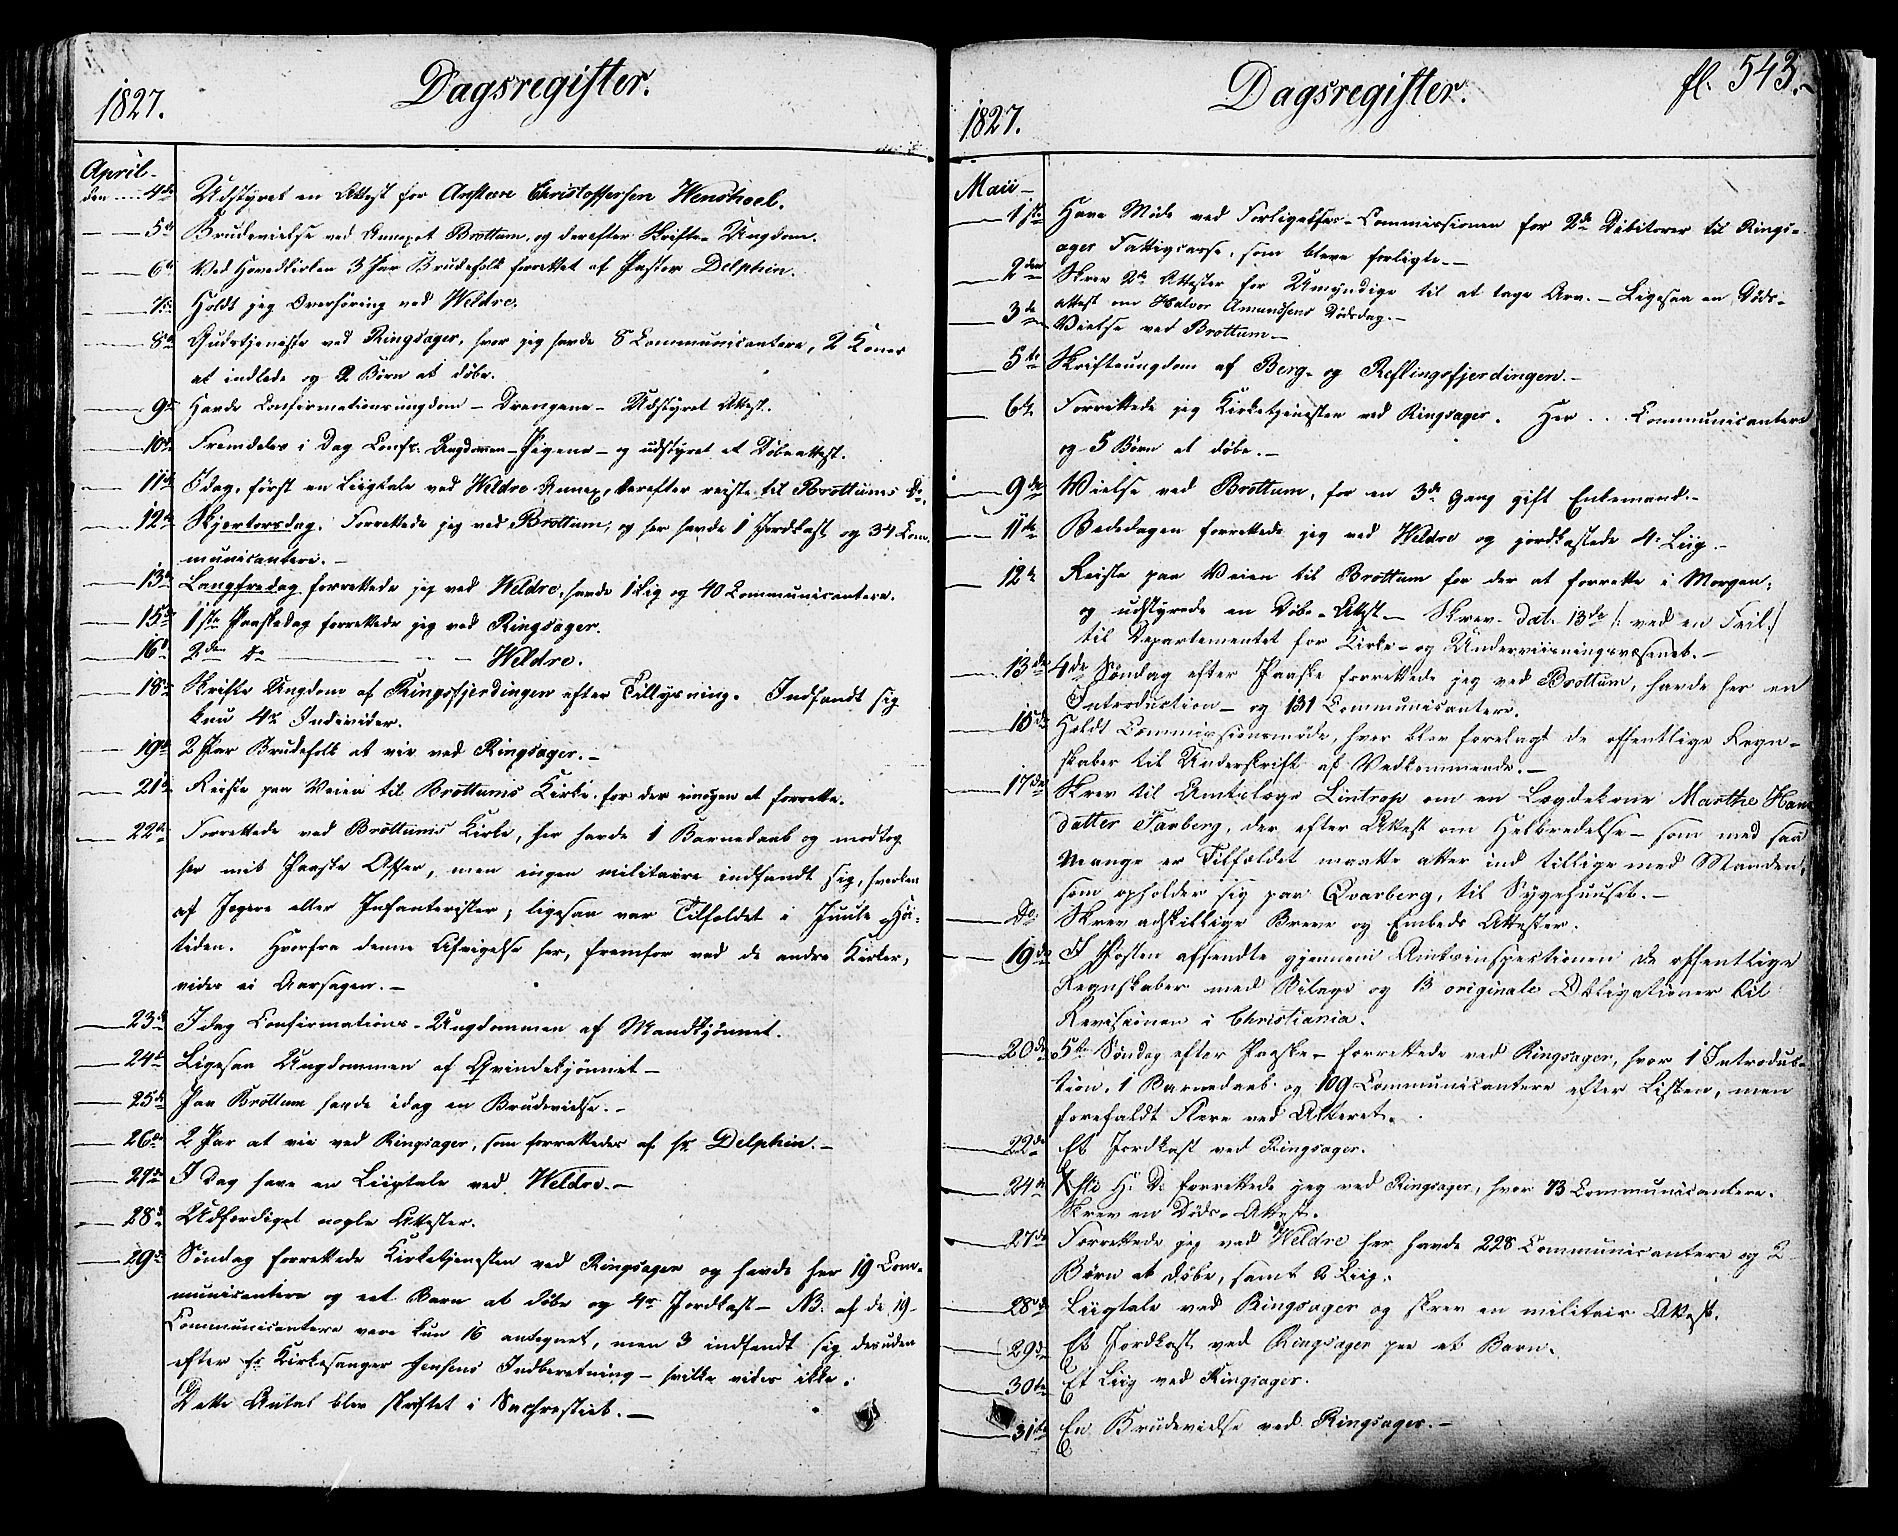 Dagsregister.
1827.
April
den 4de Udstyret en Attest for Christoffersen
5te Brudevielse ved Annexet Brøttum, og derefter Skrifte-Ungdom.
6te Ved Hovedkirken 3 Par Brudefolk forrettet af Pastor Delphin.
7de Holdt jeg Overhøring ved Weldre.
8de Gudstjeneste ved Ringsager, hvor jeg havde 8 Communicantere, 2 Koner
at indlede og 2 Børn at døbe.
9de Havde Confirmationsungdom – Drengene – Udstyret Attest.
10de Fremdeles i Dag Conf: Ungdommen – Pigene – og udstyret et Døbeattest.
11te Idag, først en Liigtale ved Weldre Annex, derefter reiste til Brøttums do.
12te Skjertorsdag. Forrettede jeg ved Brøttum, og her havde 1 Jordkast og 34 Com-
municantere. –
13de Langfredag forrettede jeg ved Weldre, havde 1 Lig og 40 Communicantere.
15de 1ste Paaskedag forrettede jeg ved Ringsager.
16de 2den do – – Weldre.
18de Skrifte Ungdom af Ringsfjerdingen efter Tillysning. Indfandt sig
kun 42 Individer.
19de 2 Par Brudefolk at vie ved Ringsager. –
21de Reiste paa Veien til Brøttums Kirke for der imorgen at forrette.
22de Forrettede ved Brøttums Kirke, her havde 1 Barnedaab og modtog
her mit Paaske Offer, men ingen militaire indfandt sig, hverken
af Jægere eller Infanterister, ligesaa var Tilfældet i Juule Høi-
tiden. Hvorfra denne Afvigelse her, fremfor ved de andre Kirker,
vides ei Aarsagen. –
23de Idag Confirmations-Ungdommen af Mandkjønnet.
24de Ligesaa Ungdommen af Qvindekjønnet –
25de Paa Brøttum havde idag en Brudevielse. –
26de 2 Par at vie ved Ringsager, som forrettedes af hr. Delphin. –
27de I dag have en Liigtale ved Weldre. –
28de Udfærdiget nogle Attester.
29de Søndag forrettede Kirketjenesten ved Ringsager og havde her 19 Com-
municantere og eet Barn at døbe og 4re Jordkast – NB. af de 19
Communicantere vare kun 16 antegnet, men 3 indfandt sig desuden
efter hr. Kirkesanger Jensens Indberetning – hvilke vides ikke.
Dette Antal blev skriftet i Sachrestiet. –
Dagsregister.
fl. 543.
1827.
Maii –
1ste Have Møde ved Forligelses-Commissionen for 2de Debitorer til Rings-
ager Fattigcasse, som bleve forligte. –
2den Skrev 2de Attester for Umyndige til at tage Arv. – Ligesaa en Døds-
attest om Halvor Amundsens Dødsdag. –
3de Vielse ved Brøttum. –
5te Skrifteungdom af Berg- og Reflingsfjerdingen. –
6te Forrettede jeg Kirketjenesten ved Ringsager. Her ... Communicantere
og 5 Børn at døbe. –
9de Vielse ved Brøttum, for en 3de Gang gift Enkemand. –
11te Bededagen forrettede jeg ved Weldre og jordkastede 4. Liig. –
12te Reiste paa Veien til Brøttum for der at forrette i Morgen,
og udstyrede en Døbe-Attst. – Skrev dat. 13de /: ved en Feil :/
til Departementet for Kirke- og Underviisningsvæsenet. –
13de 4de Søndag efter Paaske forrettede jeg ved Brøttum, havde her en
Introduction – og 131 Communicantere.
15de Holdt Commissionsmøde, hvor blev forelagt de offentlige Regn-
skaber til Underskrift af Vedkommende. –
17de Skrev til Amtslæge Lintrop om en Lægdekone Marthe
datter Farberg, der efter Attest om Helbredelse – som med saa
Mange er Tilfældet maatte atter ind tillige med Manden,
som opholder sig paa Qvarberg, til Sygehuuset. –
Do. Skrev adskillige Breve og Embeds Attester.
19de I Posten afsendte gjennem Amtsinspectionen de offentlige
Regnskaber med Bilage og 13 originale Obligationer til
Revisionen i Christiania.
20de 5te Søndag efter Paaske – forrettede ved Ringsager, hvor 1 Introduk-
tion, 1 Barnedaab og 109 Communicantere efter Listen, men
forefaldt flere ved Alteret.
22de Et Jordkast ved Ringsager.
24de Xsti H. D. forrettede jeg ved Ringsager, hvor 73 Communicantere.
Skrev en Døds-Attest.
27de Forrettede jeg ved Weldre her havde 228 Communicantere og 2
Børn at døbe, samt 2 Liig.
28de Liigtale ved Ringsager og skrev en militair Attest.
29de Et Jordkast ved Ringsager paa et Barn.
30te Et Liig ved Ringsager.
31te En Brudevielse ved Ringsager. –